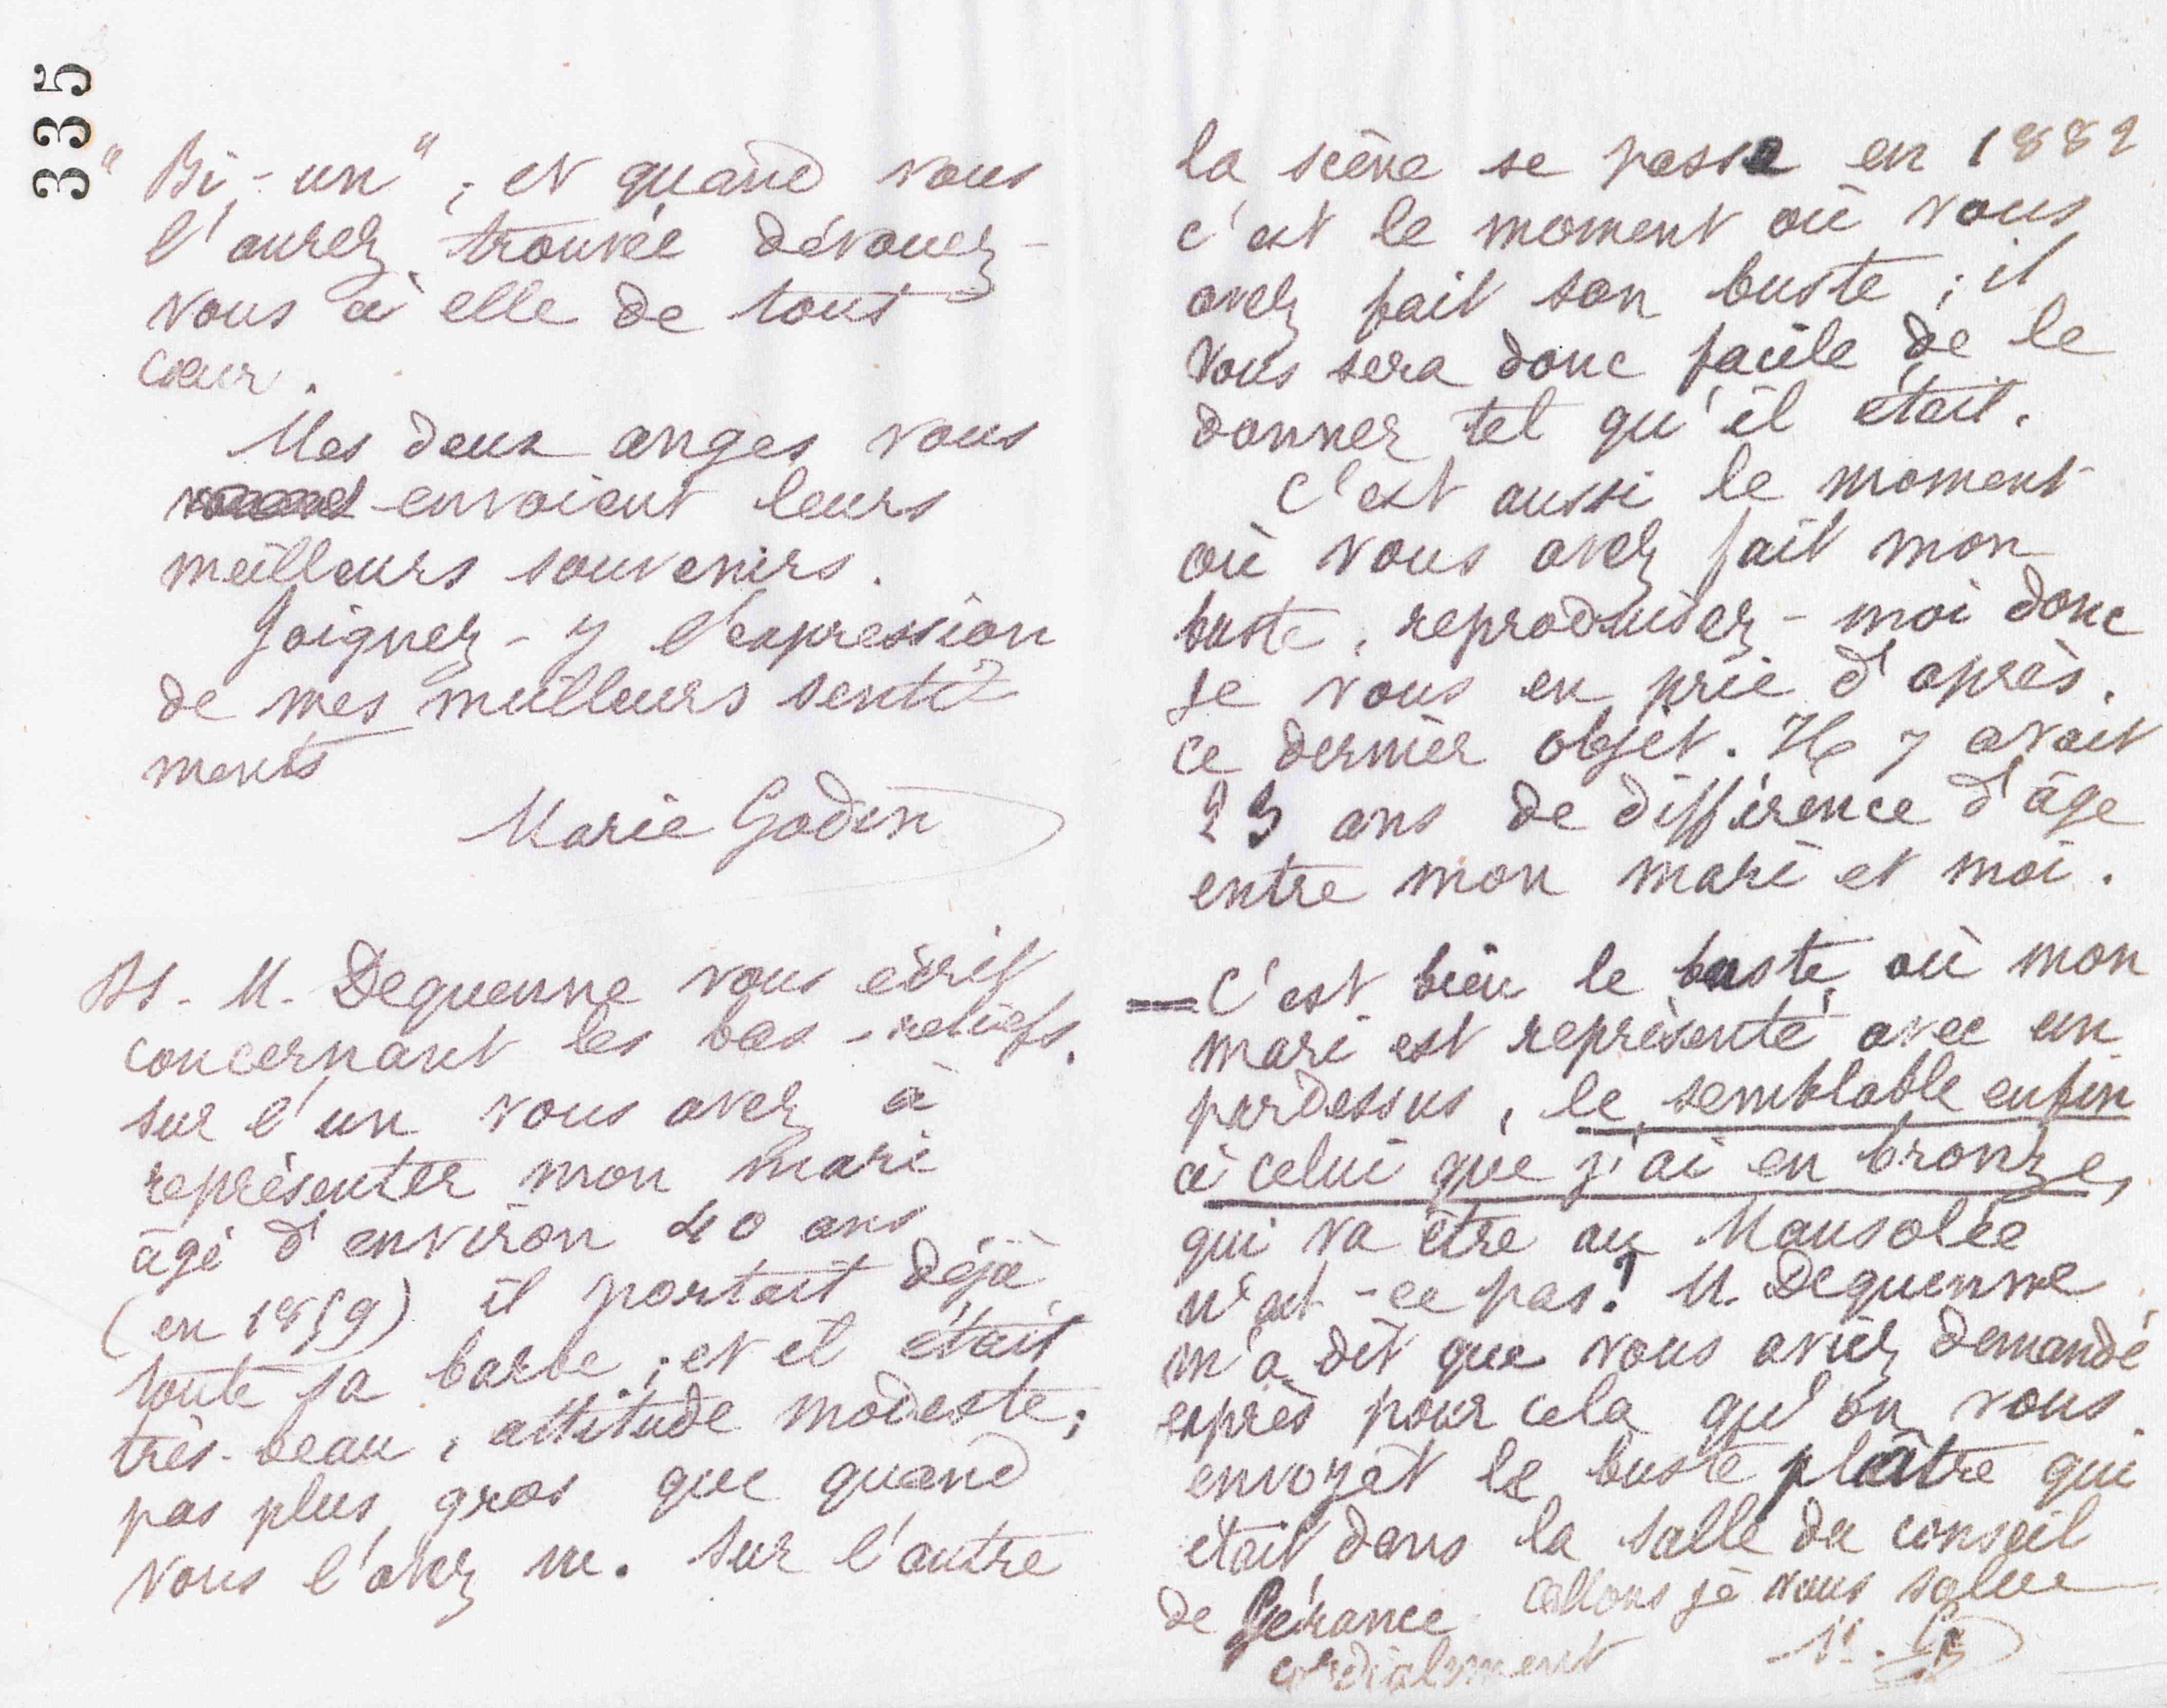 335
"Bi-un", et quand vous
l'aurez trouvée dévouez-
vous à elle de tout
cœur.
Mes deux anges vous
envoient leurs
meilleurs souvenirs.
Joignez-y l'expression
de mes meilleurs senti-
ments
Marie Godin
PS. M. Dequenne vous écrit
concernant les bas-reliefs.
sur l'un vous avez à
représenter mon mari
âgé d'environ 40 ans
(en 1859) il portait déjà
toute sa barbe; et il était
très-beau, attitude modeste;
pas plus gros que quand
vous l'avez vu. Sur l'autre
la scène se passe en 1882
c'est le moment où vous
avez fait son buste; il
vous sera donc facile de le
donner tel qu'il était.
C'est aussi le moment
où vous avez fait mon
buste, reproduisez-moi donc
je vous en prie d'après
ce dernier objet. Il y avait
23 ans de différence d'âge
entre mon mari et moi.
= C'est bien le buste où mon
mari est représenté avec un
pardessus, le semblable enfin
à celui que j'ai en bronze,
qui va être au Mausolée
n'est-ce pas? M. Dequenne
m'a dit que vous aviez demandé
exprès pour cela qu'on vous
envoyât le buste plâtre qui
était dans la salle du conseil
de Gérance. Allons je vous salue
cordialement M. G